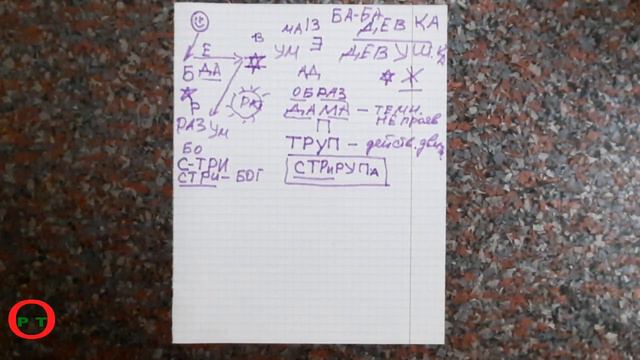 БА-БА
МА ІЗ
ДЕВКА
В
Е
УМ
Э
ДЕВУШКА
БДА
АД
Ж
Р
РА
ОБРАЗ
ДАМА — ТЕМН.
НЕ ПРОЯВ
РАЗУМ
П
БО
ТРУП — действ. движ
С-ТРИ
СТРИ-БОГ
СТРиРУПа
РАТ